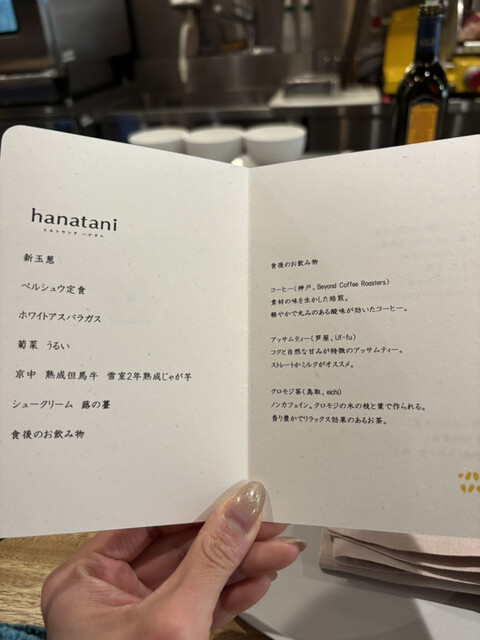 hanatani
リストランテ ハナタニ
新玉葱
ペルシュウ定食
ホワイトアスパラガス
菊菜 うるい
京中 熟成但馬牛 雪室2年熟成じゃが芋
シュークリーム 蕗の薹
食後のお飲み物
食後のお飲み物
コーヒー(神戸、Beyond Coffee Roasters)
素材の味を生かした焙煎。
軽やかで丸みのある酸味が効いたコーヒー。
アッサムティー(芦屋、Uf-fu)
コクと自然な甘みが特徴のアッサムティー。
ストレートかミルクがオススメ。
クロモジ茶(鳥取、eichi)
ノンカフェイン。クロモジの木の枝と葉で作られる。
香り豊かでリラックス効果のあるお茶。